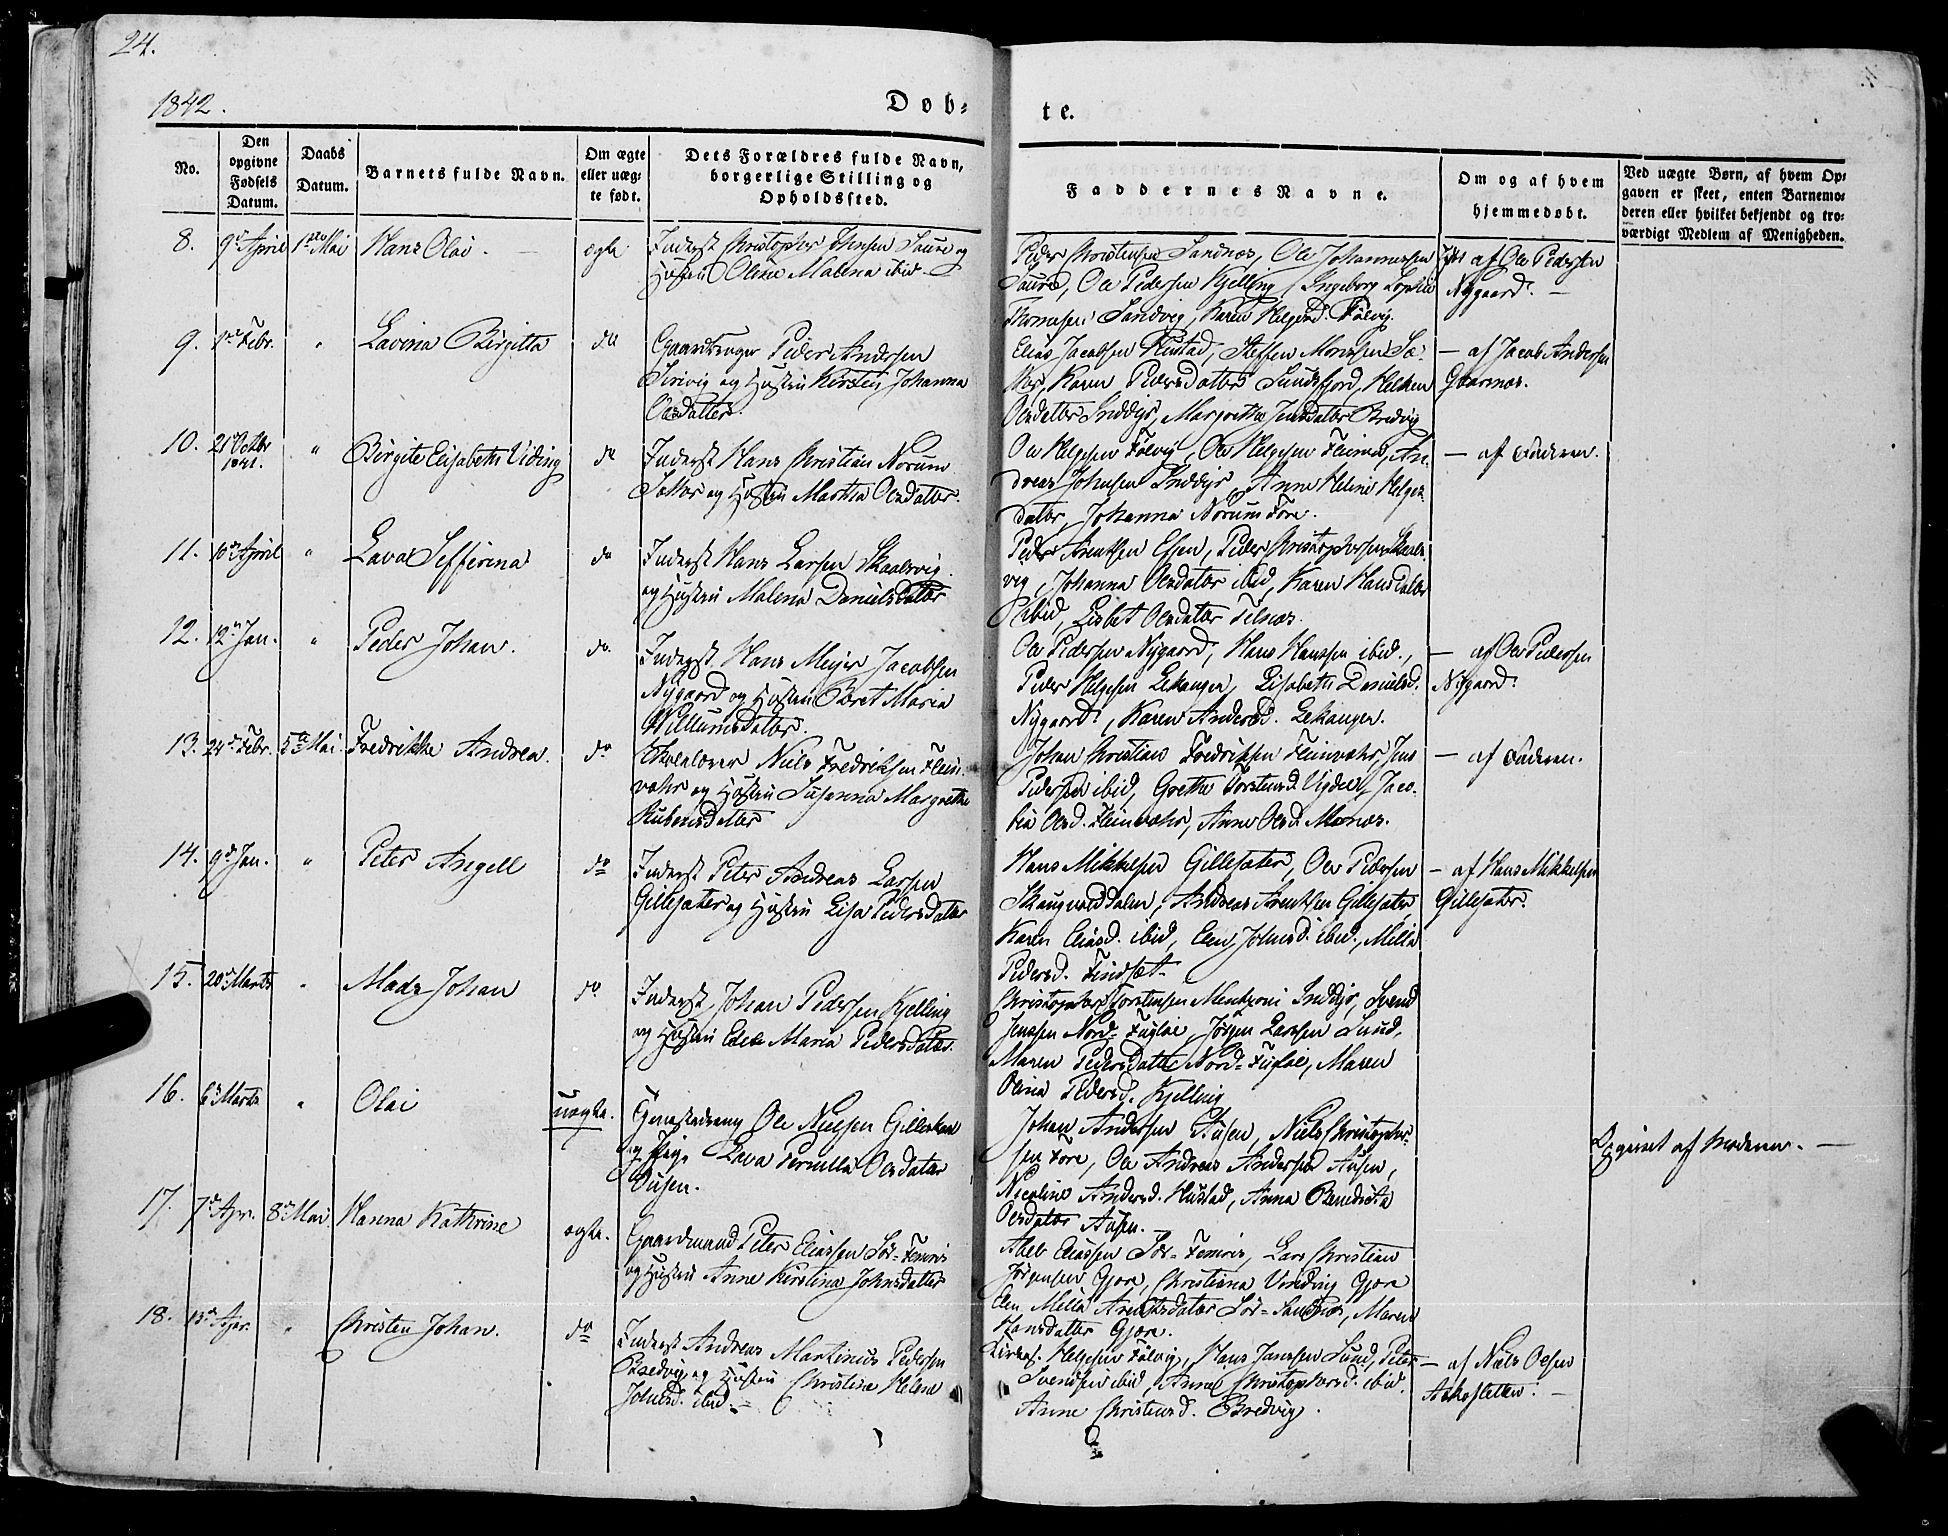 24.
1842.
Døb-
te.
No.
Den opgivne Fødsels Datum.
Daabs Datum.
Barnets fulde Navn.
Om ægte eller uæg- te født.
Dets Forældres fulde Navn,
borgerlige Stilling og
Opholdssted.
Faddernes Navne.
Om og af hvem
hjemmedøbt.
Ved uægte Børn, af hvem Op-
gaven er skeet, enten Barnemo-
deren eller hvilket bekjendt og tro-
værdigt Medlem af Menigheden.
8. 9de April 1ste Mai Hans Olai. ægte
Inderst Christopher Johnsen Saura og
Hustru Oline Malena ibid.
Peder Christensen Sandnæs, Ole Johannessen
Saura, Ole Pedersen Kjelling, Ingeborg Sophie
Thomasen Sandvig, Karen Helgesd. Følvig.
af Ole Pedersen
Nygaard. —
9. 1ste Febr. " Lavina Birgitta do
Gaardbruger Peder Andersen
og Hustru Kirsten Johanna
Olsdatter.
Elias Jacobsen Hustad, Steffen
Karen Pedersdatter Sundsfjord,
Olsdatter Inddyr, Margrethe Jensdatter Bredvig
— af Jacob Andersen
10. 21 Octbr 1841. " Birgite Elisabeth Viding do
Inderst Hans Christian Norum
og Hustru Martha Olsdatter.
Ole Helgesen Følvig, Ole Helgesen An-
dreas Johnsen Inddyr, Anne Helene Helges-
datter, Johanna Norum Fore.
— af Faderen.
11. 10de April " Lava Sefferina do
Inderst Hans Larsen Skaalsvig
og Hustru Malena Danielsdatter
Peder Arentsen Esen, Peder Christophersen Skaals-
vig, Johanna Olsdatter ibid, Karen Hansdatter
ibid, Lisbet Olsdatter
12. 12te Jan. " Peder Johan. do.
Inderst Hans Meyer Jacobsen
Nygaard og Hustru Beret Maria
Willumsdatter.
Ole Pedersen Nygaard, Hans Hanssen ibid.,
Peder Helgesen Lekanger, Lisabeth Danielsd.
Nygaard, Karen Andersd. Lekanger.
— af Ole Pedersen
Nygaard.
13. 24de Febr. 5te Mai. Fredrikke Andrea. do
Niels Fredriksen Flein-
væhr og Hustru Susanna Margrethe
Rubensdatter
Johan Christian Fredriksen Fleinvæhr, Jens
Pedersen ibid, Grethe Torstensd. Jaco-
bia Olsd. Fleinvæhr, Anne Olsd. Monæs.
— af Faderen.
14. 9de Jan. " Peter Angell do
Inderst Peter Andreas Larsen
Gillesæter og Hustru Lisa Pedersdatter
Hans Mikkelsen Gillesæter, Ole Pedersen
Andreas Arentsen Gillesæter
Karen Eliasd. ibid, Elen Johnsd. ibid., Milla
Pedersd. Findsæt.
— af Hans Mikkelsen
Gillesæter.
15. 20de Marts " Mads Johan do.
Inderst Johan Pedersen Kjelling
og Hustru Maria Pedersdatter.
Christopher Torstensen Mentzoni Inddyr, Svend
Jenssen Nord-Fugløe, Jørgen Larssen Sund,
Maren Pedersdatter Nord-Fugløe, Maren
Olina Pedersd. Kjelling
16. 6te Marts " Olai uægte.
Ole Nielsen Gilleskaal
og Pige Lava Pernilla Olsdatter
Ousen.
Johan Andersen Ausen, Niels Christopher-
sen Fore, Ole Andreas Andersen Ausen,
Nicoline Andersd. Hustad, Anna Benedicta
Olsdatter Ausen.
Opgivet af Moderen. —
17. 7de Apr. 8de Mai Hanna Kathrine ægte.
Gaardmand Peter Eliassen Sør-Femris
og Hustru Anne Kirstina Johnsdatter
Eliassen Sør-Femris, Lars Christian
Jørgensen Gjøre, Christiana Vinding Gjøre
Elen Milla Arentsdatter Sør-Sandnæs, Maren
Hansdatter Gjøre.
18. 15de Apr. " Christen Johan. do
Inderst Andreas Martinus Pedersen
Bredvig og Hustru Christina Helena
Johnsd. ibid. —
Helgesen Følvig, Hans Janssen Sund, Peter
Svendsen ibid, Anne Christophersd. ibid.
Anne Christensd. Bredvig.
— af Niels Olsen